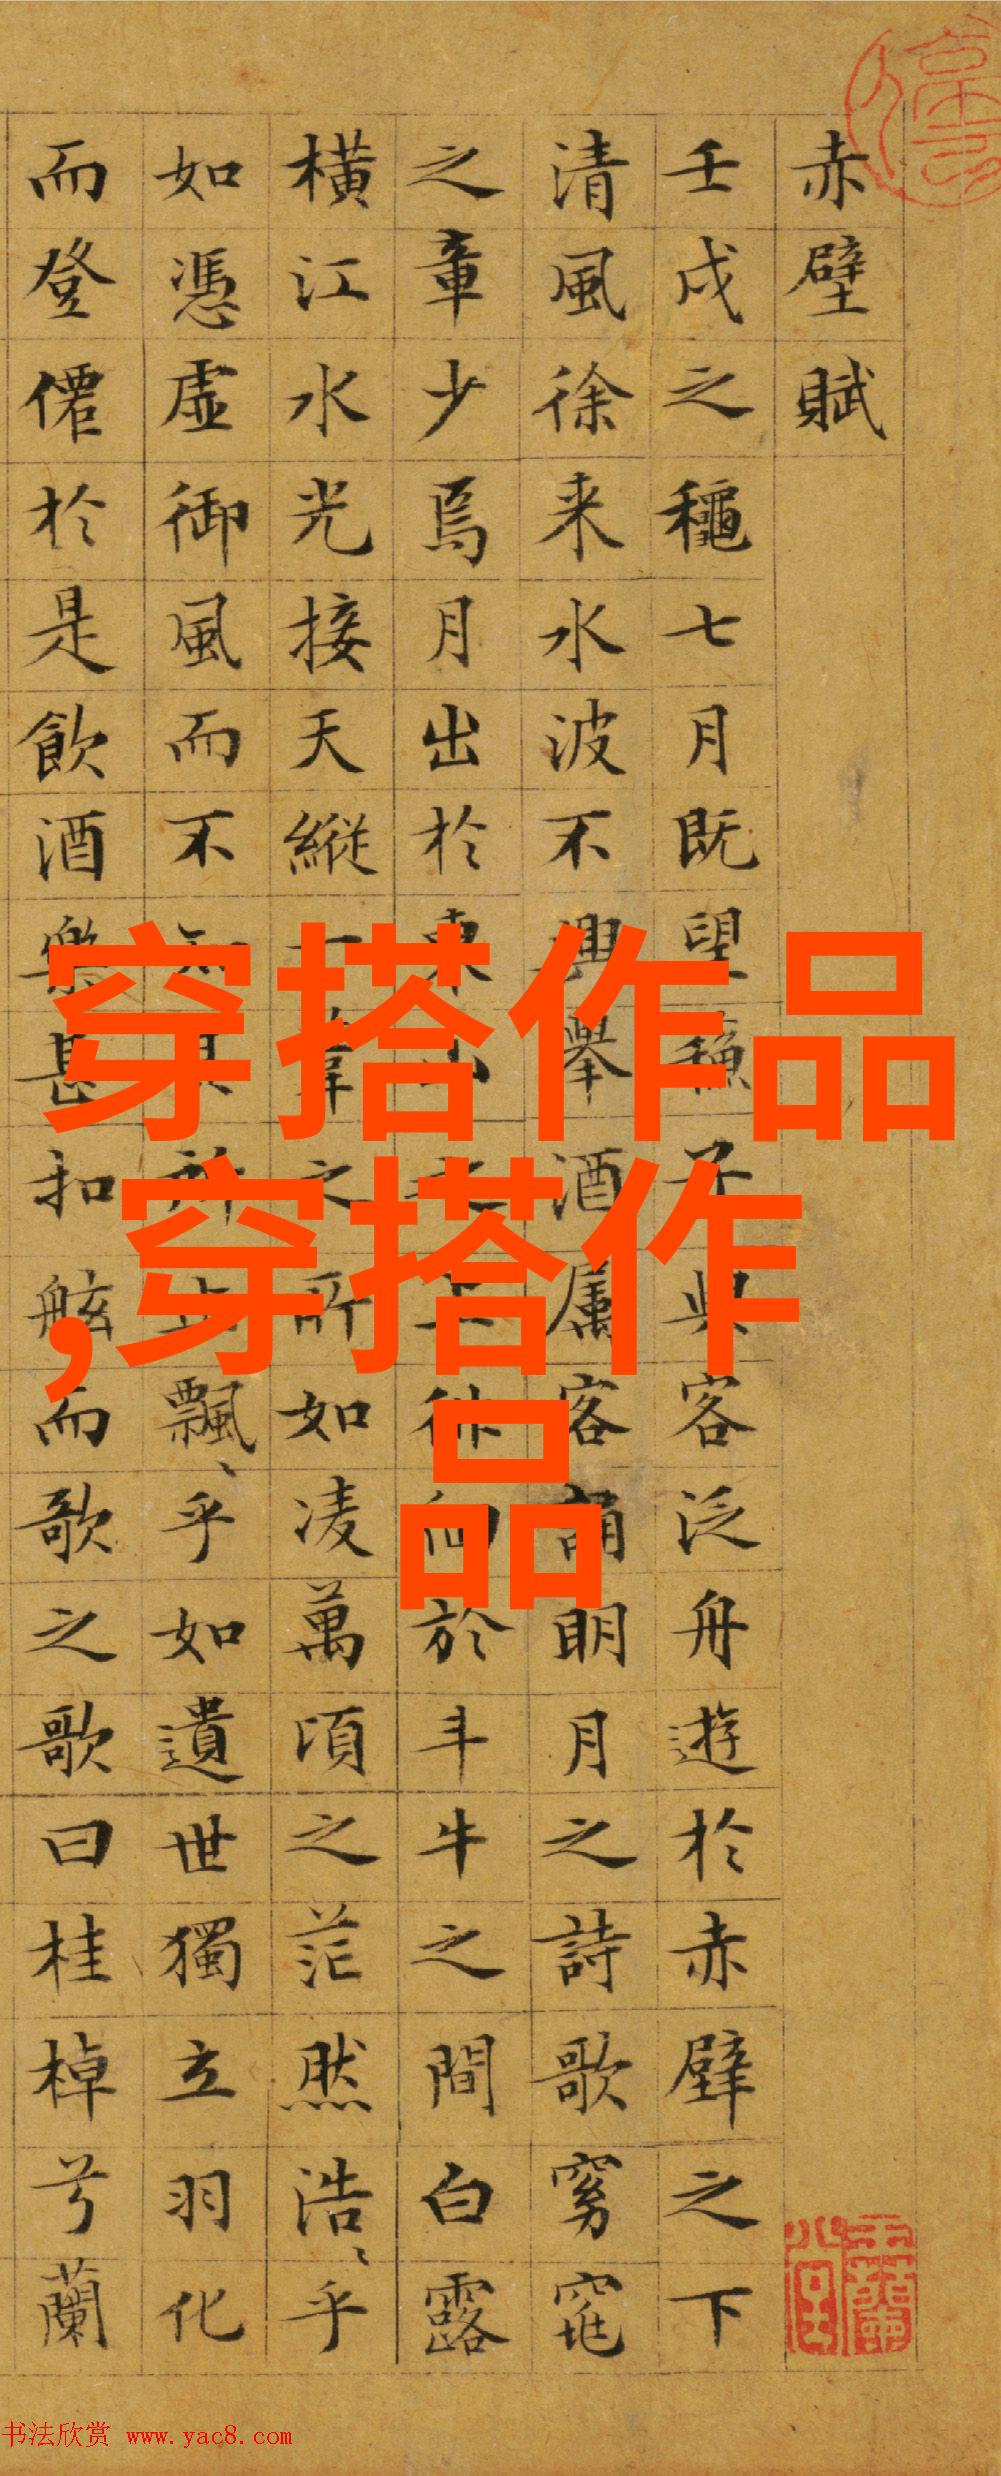 赤壁賦
壬戌之穐七月既望穌子與客泛舟遊於赤壁之下
清風徐来水波不興舉酒属客誦明月之詩歌窈窕
之章少焉月出於東山之上徘徊於斗牛之間白露
橫江水光接天縱一葦之所如凌萬頃之茫然浩〻乎
如憑虛御風而不知其所止飄〻乎如遺世獨立羽化
而登僊於是飲酒樂甚扣舷而歌之歌曰桂棹兮蘭
穿搭作品
,穿搭作
品
书法欣赏 www.yac8.com